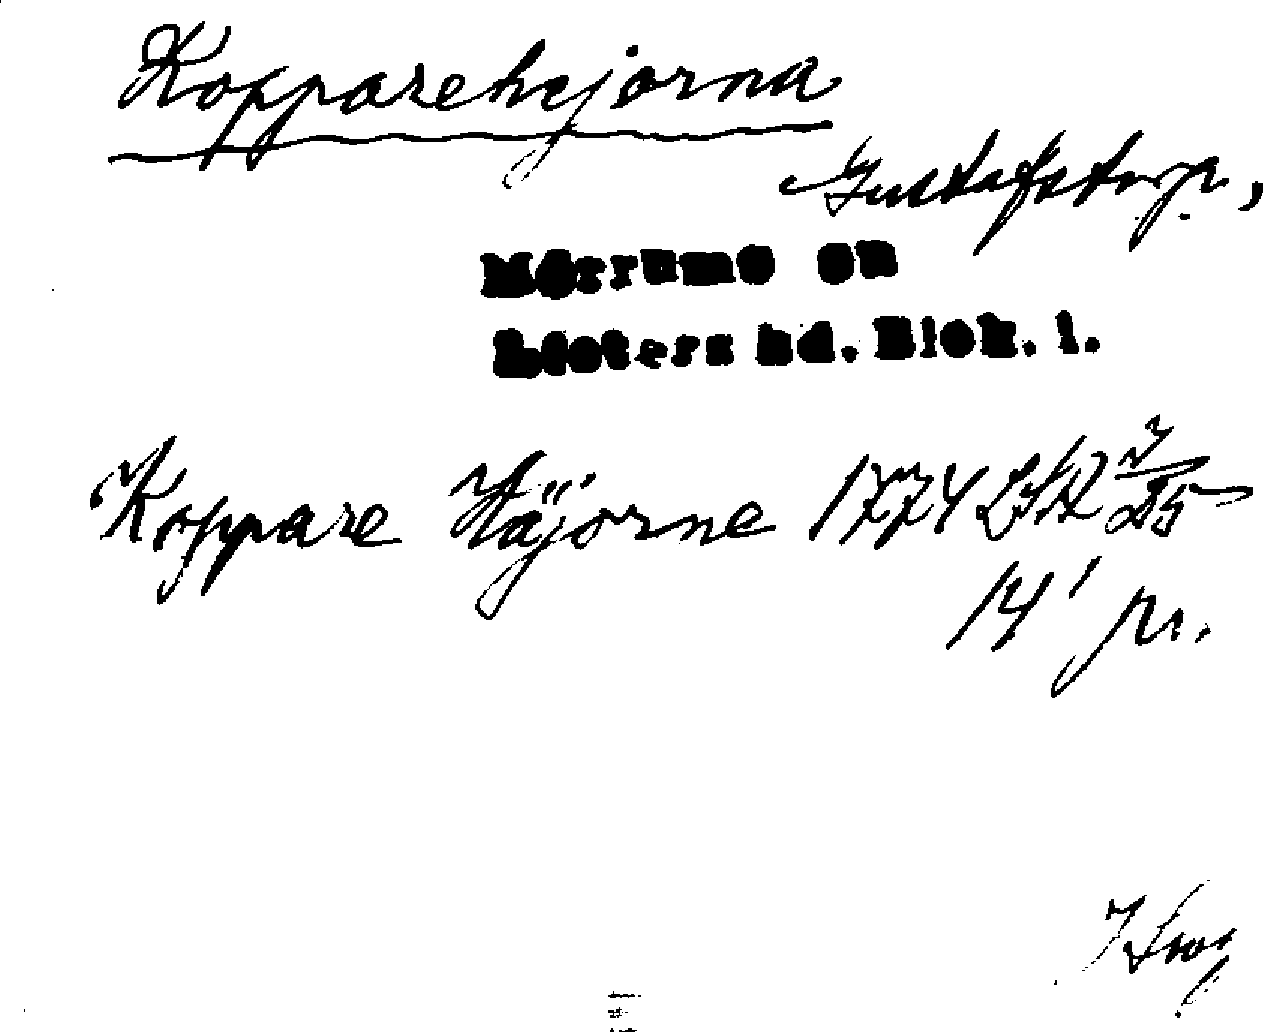 Kopparehejorna
Gustafstorp,
Mörrums sn
Listers hd. Blek. l.
Koppare Häjorne 1774
14' pr.